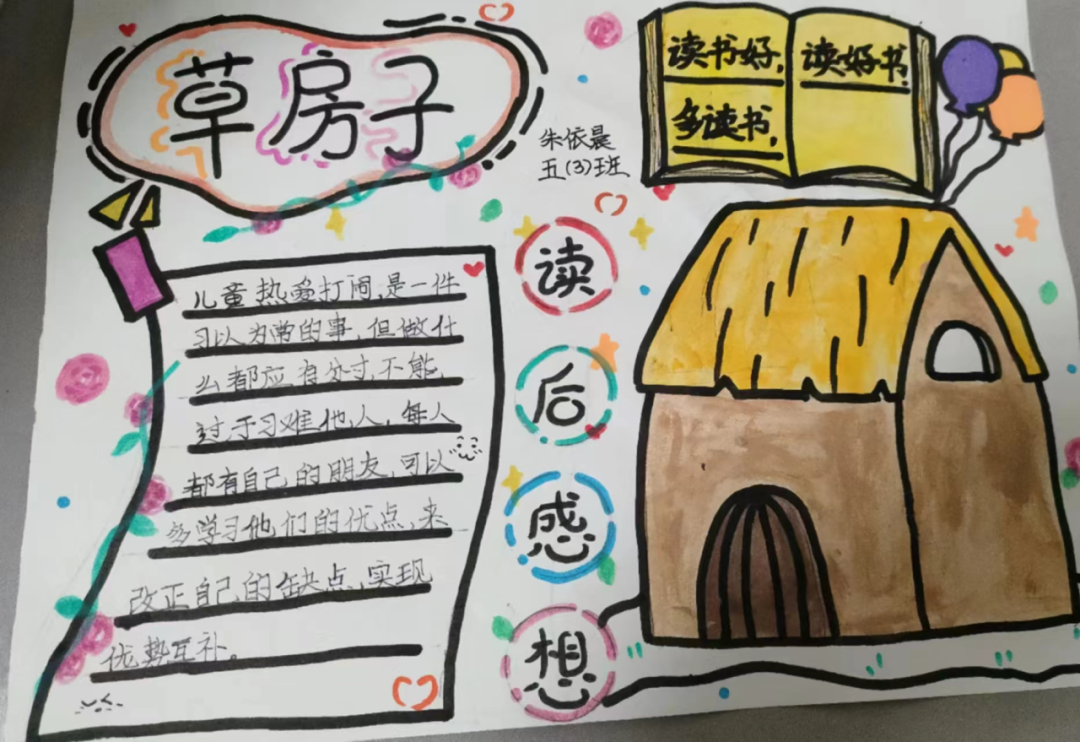 草房子
朱依晨
五(3)班
读书好,
多读书,
读好书.
读
后
感
想
儿童热爱打闹,是一件
习以为常的事,但做什
么都应有分寸,不能
过于习难他人,每人
都有自己的朋友,可以
多学习他们的优点,来
改正自己的缺点,实现
优势互补。